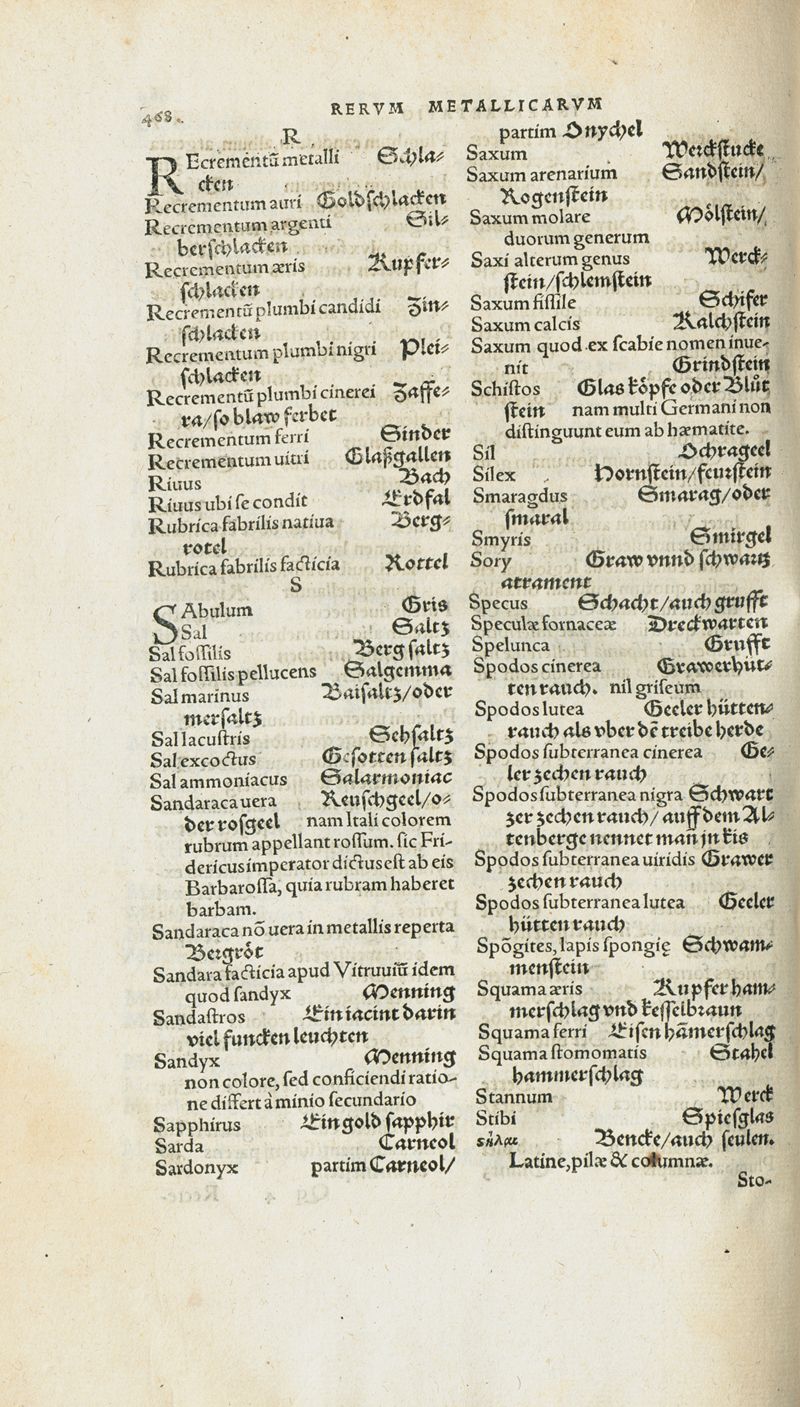 468.
RERVM METALLICARVM
R
REcrementū metalli Schla⸗
cken
Recrementum auri Goldſchlacken
Recrementum argenti Sil⸗
berſchlacken
Recrementum æris Kupfer⸗
ſchlacken
Recrementū plumbi candidi Zin⸗
ſchlacken
Recrementum plumbi nigri Plei⸗
ſchlacken
Recrementū plumbi cinerei Zaffe⸗
ra/ſo blaw ferbet
Recrementum ferri Sinder
Recrementum uitri Glaßgallen
Riuus Bach
Riuus ubi ſe condit Erdfal
Rubrica fabrilis natiua Berg⸗
rotel
Rubrica fabrilis facticia Rottel
S
SAbulum Gris
Sal Saltz
Sal foſſilis Berg ſaltz
Sal foſſilis pellucens Salgemma
Sal marinus Baiſaltz/oder
merſaltz
Sal lacuſtris Sehſaltz
Sal excoctus Geſotten ſaltz
Sal ammoniacus Salarmoniac
Sandaraca uera Reuſchgeel/o⸗
der roſgeel nam Itali colorem
rubrum appellant roſſum. ſic Fri-
dericus imperator dictus eſt ab eis
Barbaroſſa, quia rubram haberet
barbam.
Sandaraca nō uera in metallis reperta
Bergrȯt
Sandara facticia apud Vitruuiū idem
quod ſandyx Menning
Sandaſtros Ein iacint darin
viel funcken leuchten
Sandyx Menning
non colore, ſed conficiendi ratio-
ne differt à minio ſecundario
Sapphirus Ein gold ſapphir
Sarda Carneol
Sardonyx partim Carneol/
partim Onychel
Saxum Werckſtucke
Saxum arenarium Sandſtein/
Rogenſtein
Saxum molare Mȯlſtein/
duorum generum
Saxi alterum genus Werck⸗
ſtein/ſchlemſtein
Saxum fiſſile Schifer
Saxum calcis Kalchſtein
Saxum quod ex ſcabie nomen inue-
nit Grindſtein
Schiſtos Glas kȯpfe oder Blůt
ſtein nam multi Germani non
diſtinguunt eum ab hæmatite.
Sil Ochrageel
Silex Hornſtein/feurſtein
Smaragdus Smarag/oder
ſmaral
Smyris Smirgel
Sory Graw vnnd ſchwartz
atrament
Specus Schacht/auch grufft
Speculæ fornaceæ Dreckwarten
Spelunca Grufft
Spodos cinerea Grawer hüt⸗
ten rauch. nil griſeum
Spodos lutea Geeler hütten⸗
rauch als vber dē treibe herde
Spodos ſubterranea cinerea Ge⸗
ler zechen rauch
Spodos ſubterranea nigra Schwart
zer zechen rauch/ auff dem Al⸗
tenberge nennet man jn kis
Spodos ſubterranea uiridis Grawer
zechen rauch
Spodos ſubterranea lutea Geeler
hütten rauch
Spōgites, lapis ſpongię Schwam⸗
menſtein
Squama æris Kupfer ham⸗
merſchlag vnd keſſelbraun
Squama ferri Eiſen hāmerſchlag
Squama ſtomomatis Stahel
hammerſchlag
Stannum Werck
Stibi Spieſglas
ςῆλαι Bencke/auch ſeulen.
Latine, pilæ & columnæ.
Sto-